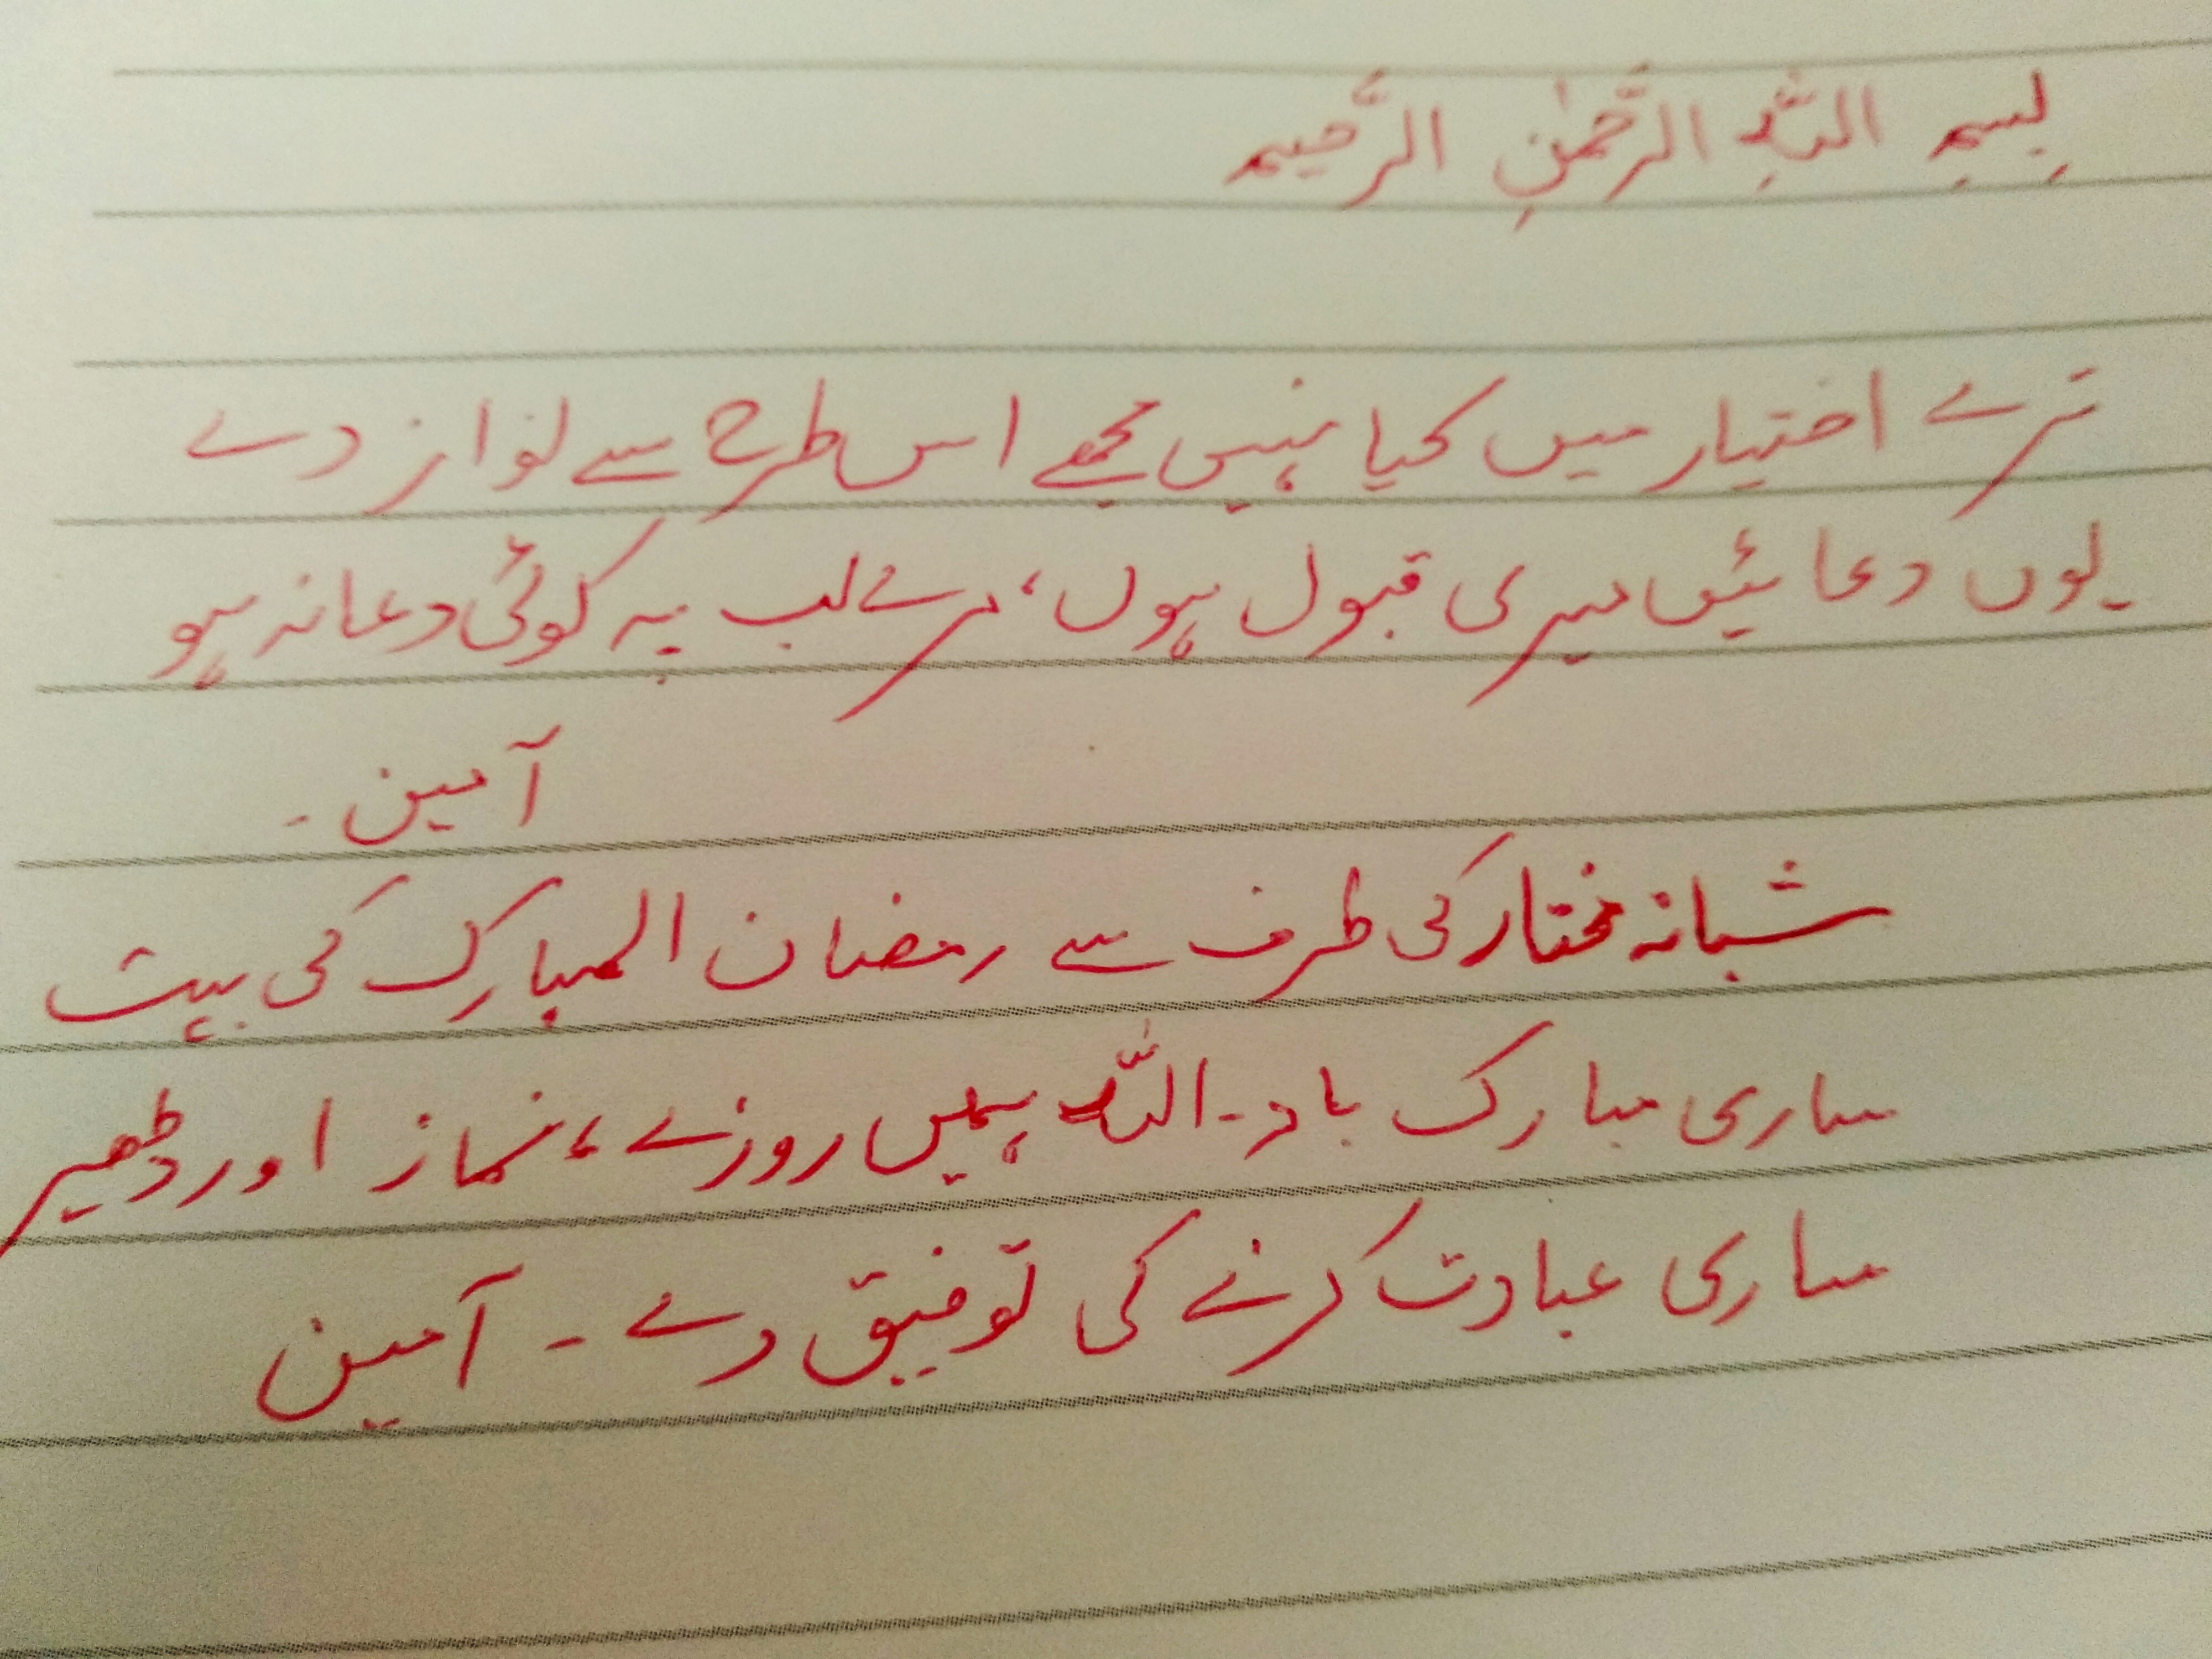 بِسمِ اللّٰہِ الرَّحمٰنِ الرَّحیم
ترے اختیار میں کیا نہیں مجھے اس طرح سے نواز دے
یوں دعائیں میری قبول ہوں، مرے لب پہ کوئی دعا نہ ہو
آمین۔
شبانہ مختار کی طرف سے رمضان المبارک کی بہت
ساری مبارک باد۔ اللّٰہ ہمیں روزے، نماز اور ڈھیر
ساری عبادت کرنے کی توفیق دے۔ آمین